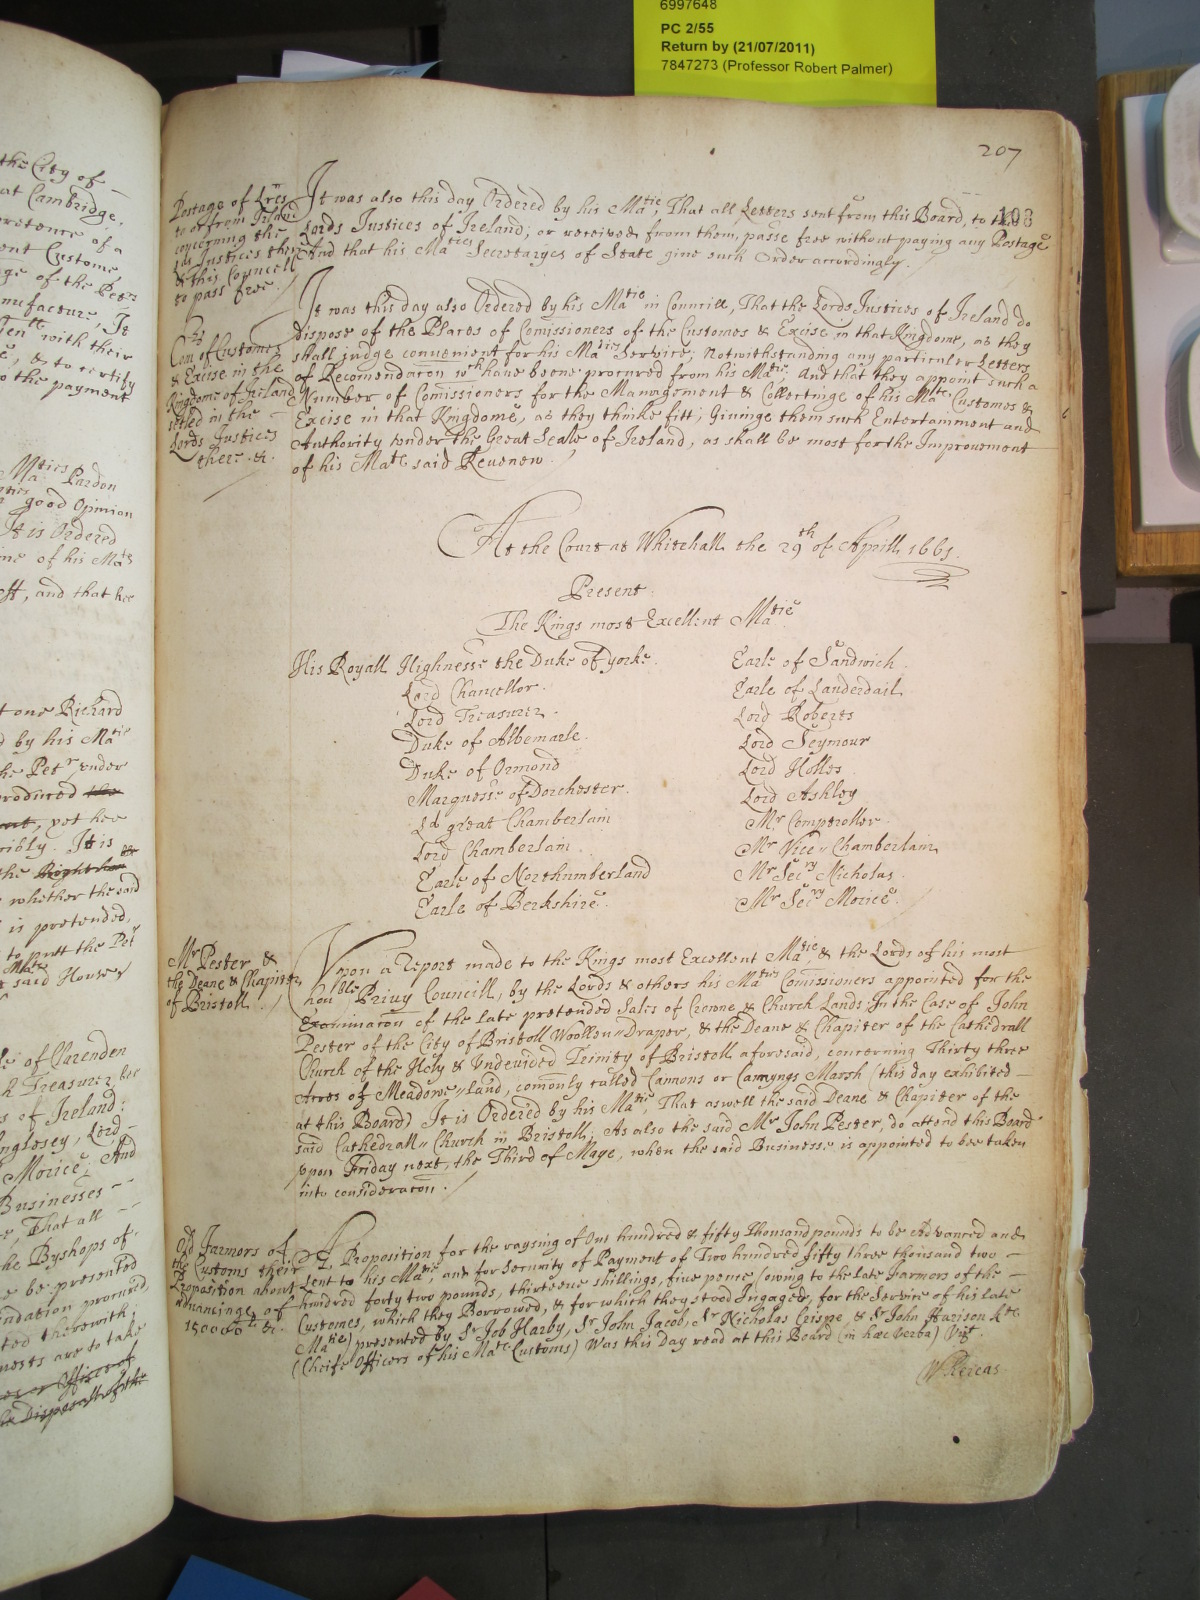 6997648
PC 2/55
Return by (21/07/2011)
7847273 (Professor Robert Palmer)
the City of
at Cambridge.
pretence of a
ent Custome,
ge of the Petrs
nufacture, It
with their
, & to certify
o the payment
Maties Pardon
good Opinion
It is Ordered
me of his Mats
and that hee
t one Richard
d by his Matie
he Petr vnder
produced the
yet hee
ribly. It is
the
whether the said
is pretended,
to putt the Petr
said House
le of Clarenden
h Treasurer, bee
s of Ireland:
nglesey, Lord
Morice, And
Businesses
e, That all
he Byshops of
e be presented
ndation procured,
ted therewith;
nests are to take
Officer of
he Disposall of the
207
103
Postage of Lres
to or from Irland
concerning the
Lds Justices there
& this Councell
to pass free.
It was also this day Ordered by his Matie, That all Letters sent from this Board, to the
Lords Justices of Ireland, or received from them, passe free without paying any Postage
And that his Maties Secretaryes of State giue such Order accordingly.
The
Com of Customes
& Excise in the
Kingdome of Irland
setled in the
Lords Justices
there &c.
It was this day also Ordered by his Matie in Councill, That the Lords Justices of Ireland do
dispose of the Places of Comissioners of the Customes & Excise in that Kingdome, as they
shall judge convenient for his Maties Service; Notwithstanding any particuler Letters
of Recomendacon wch have beene procured from his Matie. And that they appoint such a
Number of Comissioners for the Management & Collectinge of his Mats Customes &
Excise in that Kingdome, as they thinke fitt; Giuinge them such Entertainment and
Authority vnder the Great Seale of Ireland, as shall be most for the Improuement
of his Mats said Reuenew.
At the Court at Whitehall the 29th of Aprill 1661.
Present
The Kings most Excellent Matie
His Royall Highnesse the Duke of yorke.
Lord Chancellor.
Lord Treasurer.
Duke of Albemarle.
Duke of Ormond
Marquesse of Dorchester.
Ld great Chamberlain
Lord Chamberlain.
Earle of Northumberland
Earle of Berkshire.
Earle of Sandwich.
Earle of Lauderdail
Lord Roberts
Lord Seymour
Lord Holles
Lord Ashley
Mr Comptroller.
Mr Vice-Chamberlain
Mr Secry Nicholas.
Mr Secry Morice.
Mr Pester &
the Deane & Chapiter
of Bristoll.
Vpon a Report made to the Kings most Excellent Matie, & the Lords of his most
honble Privy Councill, by the Lords & others his Mats Comissioners appointed for the
Examinacon of the late pretended Sales of Crowne & Church Lands; In the Case of John
Pester of the City of Bristoll Woollen-Draper, & the Deane & Chapiter of the Cathedrall
Church of the Holy & Undevided Trinity of Bristoll aforesaid, concerning Thirty three
Acres of Meadowe-land, comonly called Cannons or Cannyngs Marsh (this day exhibited
at this Board) It is Ordered by his Matie, That aswell the said Deane & Chapiter of the
said Cathedrall-Church in Bristoll; As also the said Mr John Pester, do attend this Board
vpon Friday next, the Third of Maye, when the said Businesse is appointed to bee taken
into consideracon.
Old Farmors of
the Customs their
Proposition about
aduancinge of
150000li &c.
A Proposition for the raysing of One hundred & fifty Thousand pounds to be advanced and
Lent to his Matie, and for Security of Payment of Two hundred fifty three thousand two
hundred forty two pounds, thirteene shillings, fiue pence (owing to the late Farmors of the
Customes, which they Borrowed, & for which they stood Ingaged, for the Service of his late
Matie) presented by Sr Job Harby, Sr John Jacob, Sr Nicholas Crispe, & Sr John Harison Kts
(Cheife Officers of his Mats Customs) Was this Day read at this Board (in hæc verba) Vizt.
Whereas